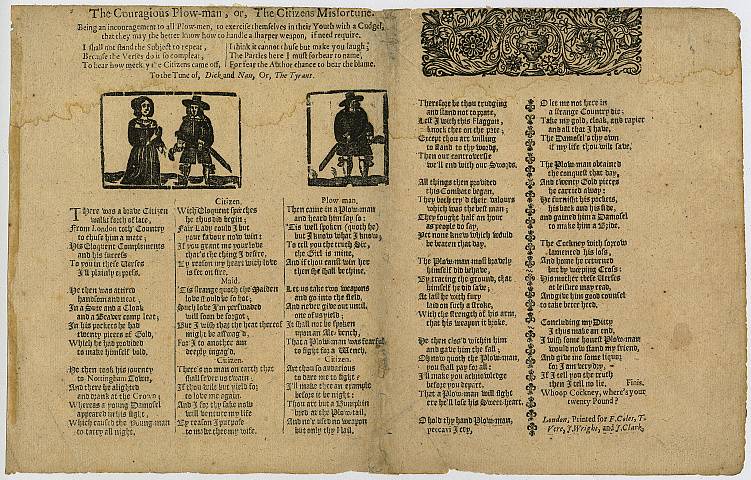 The Couragious Plow-man, or, The Citizens Misfortune.
Being an incouragement to all Plow-men, to exercise themselves in their Youth with a Cudgel,
that they may the better know how to handle a sharper weapon, if need require.
I shall not stand the Subject to repeat,
Because the Verses do it so compleat;
To hear how the Citizens came off,
I think it cannot chuse but make you laugh;
The Parties here I must forbear to name,
For fear the Author chance to bear the blame.
To the Tune of, Dick and Nan, Or, The Tyrant.
THere was a brave Citizen
walkt forth of late,
From London toth' Country
to chuse him a mate;
His Eloquent Complements
and his success
To you in these Verses
I'll plainly express.
He then was attired
handsom and neat,
In a Sute and a Cloak
and a Beaver compleat,
In his pockets he had
twenty pieces of Gold,
Which he had provided
to make himself bold.
He then took his journey
to Nottingham Town,
And there he alighted
and drank at the Crown;
Whereas a young Damosel
appeared in his sight,
Which caused the young-man
to tarry all night.
Citizen.
With Eloquent speeches
he thus did begin;
Fair Lady could I but
your favour now win;
If you grant me your love
that's the thing I desire,
By reason my heart with love
is set on fire.
Maid.
'Tis strange quoth the Maiden
love should be so hot;
Such love I'm perswaded
will soon be forgot;
But I wish that the heat thereof
might be asswag'd,
For I to another am
deeply ingag'd.
Citizen.
There's no man on earth that
shall serve us twain
If thou wilt but yield for
to love me again.
And I for thy sake now
will venture my life
By reason I purpose
to make thee my wife.
Plow-man.
Then came in a Plow-man
and heard him say so;
'Tis well spoken (quoth he)
but I know what I know;
To tell you the truth Sir,
the Girl is mine,
And if thou canst win her
then she shall be thine.
Let us take two weapons
and go into the field,
And never give out until,
one of us yield;
It shall not be spoken
upon an Ale-bench,
That a Plow-man was fearful
to fight for a Wench.
Citizen.
Art thou so audacious
to dare me to fight
I'll make thee an example
before it be night:
Thou art but a Bumpkin
bred at the Plow-tail,
And ne'r used no weapon
but only thy flail.
Therefore be thou trudging
and stand not to prate,
Lest I with this Flaggon,
knock thee on the pate;
Except thou art willing
to stand to thy words,
Then our controversie
we'll end with our Swords.
All things then provided
this Combate began,
They both try'd their valours
which was the best man;
They fought half an hour
as people do say,
Yet none knew which would
be beaten that day.
The Plow-man most bravely
himself did behave,
By tracing the ground, that
himself he did save,
At last he with fury
laid on such a stroke,
With the strength of his arm,
that his weapon it broke.
He then clos'd within him
and gave him the fall;
O now quoth the Plow-man,
you shall pay for all:
I'll make you acknowledge
before you depart,
That a Plow-man will fight
ere he'll lose his Sweet-heart.
O hold thy hand Plow-man,
peccavi I cry,
O let me not here in
a strange Country die;
Take my gold, cloak, and rapier
and all that I have,
The Damosel's thy own
if my life thou wilt save.
The Plow-man obtained
the conquest that day,
And twenty Gold pieces
he carried away:
He furnisht his pockets,
his back and his side,
and gained him a Damosel
to make him a Bride.
The Cockney with sorrow
lamented his loss,
And home he returned
but by weeping Cross:
His mother these Verses
at leisure may read,
And give him good counsel
to take better heed.
Concluding my Ditty
I thus make an end,
I wish some honest Plow-man
would now stand my friend,
And give me some liquor
for I am very dry,
If I tell you the truth
then I tell no lie.
Finis.
Whoop Cockney, where's your
twenty Pound?
London, Printed for F. Coles, T.
Vere, J. Wright, and J. Clark.